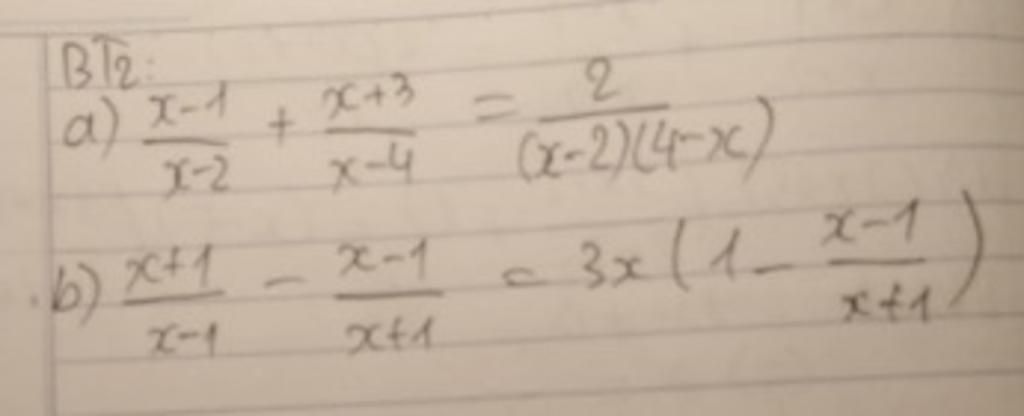 BT2:
a) \frac{x-1}{x-2} + \frac{x+3}{x-4} = \frac{2}{(x-2)(4-x)}
b) \frac{x+1}{x-1} - \frac{x-1}{x+1} = 3x(1 - \frac{x-1}{x+1})